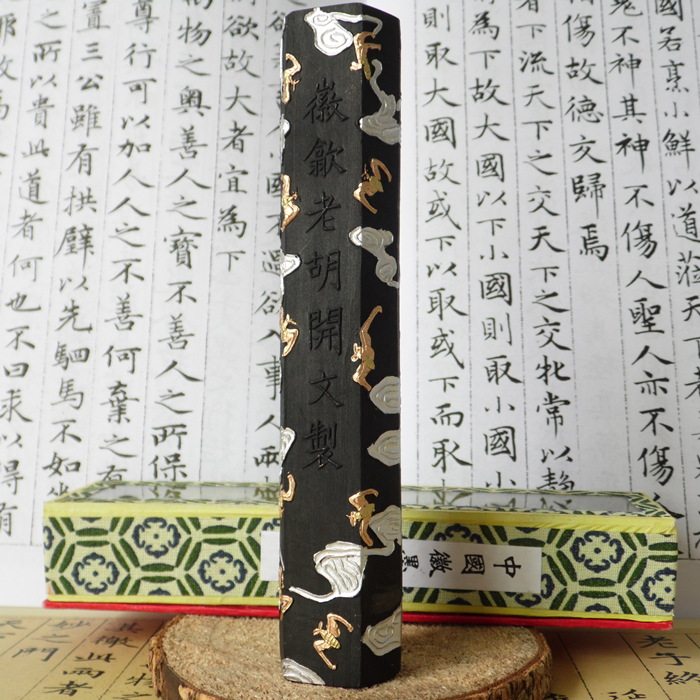 徽歙老胡開文製
國若烹小鮮以道蒞天
鬼不神其神不傷人聖人亦不傷
傷故德交歸焉
下流天下之交天下之牝常以靜
為下故大國以下小國則取小國
則取大國故或下以取或下而取
過欲入事人兩
欲故大者宜為下
物之奧善人之寶不善人之所保
尊行可以加人人之不善何棄之有
置三公雖有拱璧以先駟馬不如坐
之所以貴此道者何也不曰求以得有
中國徽墨
其徼此兩者
妙之門
老子